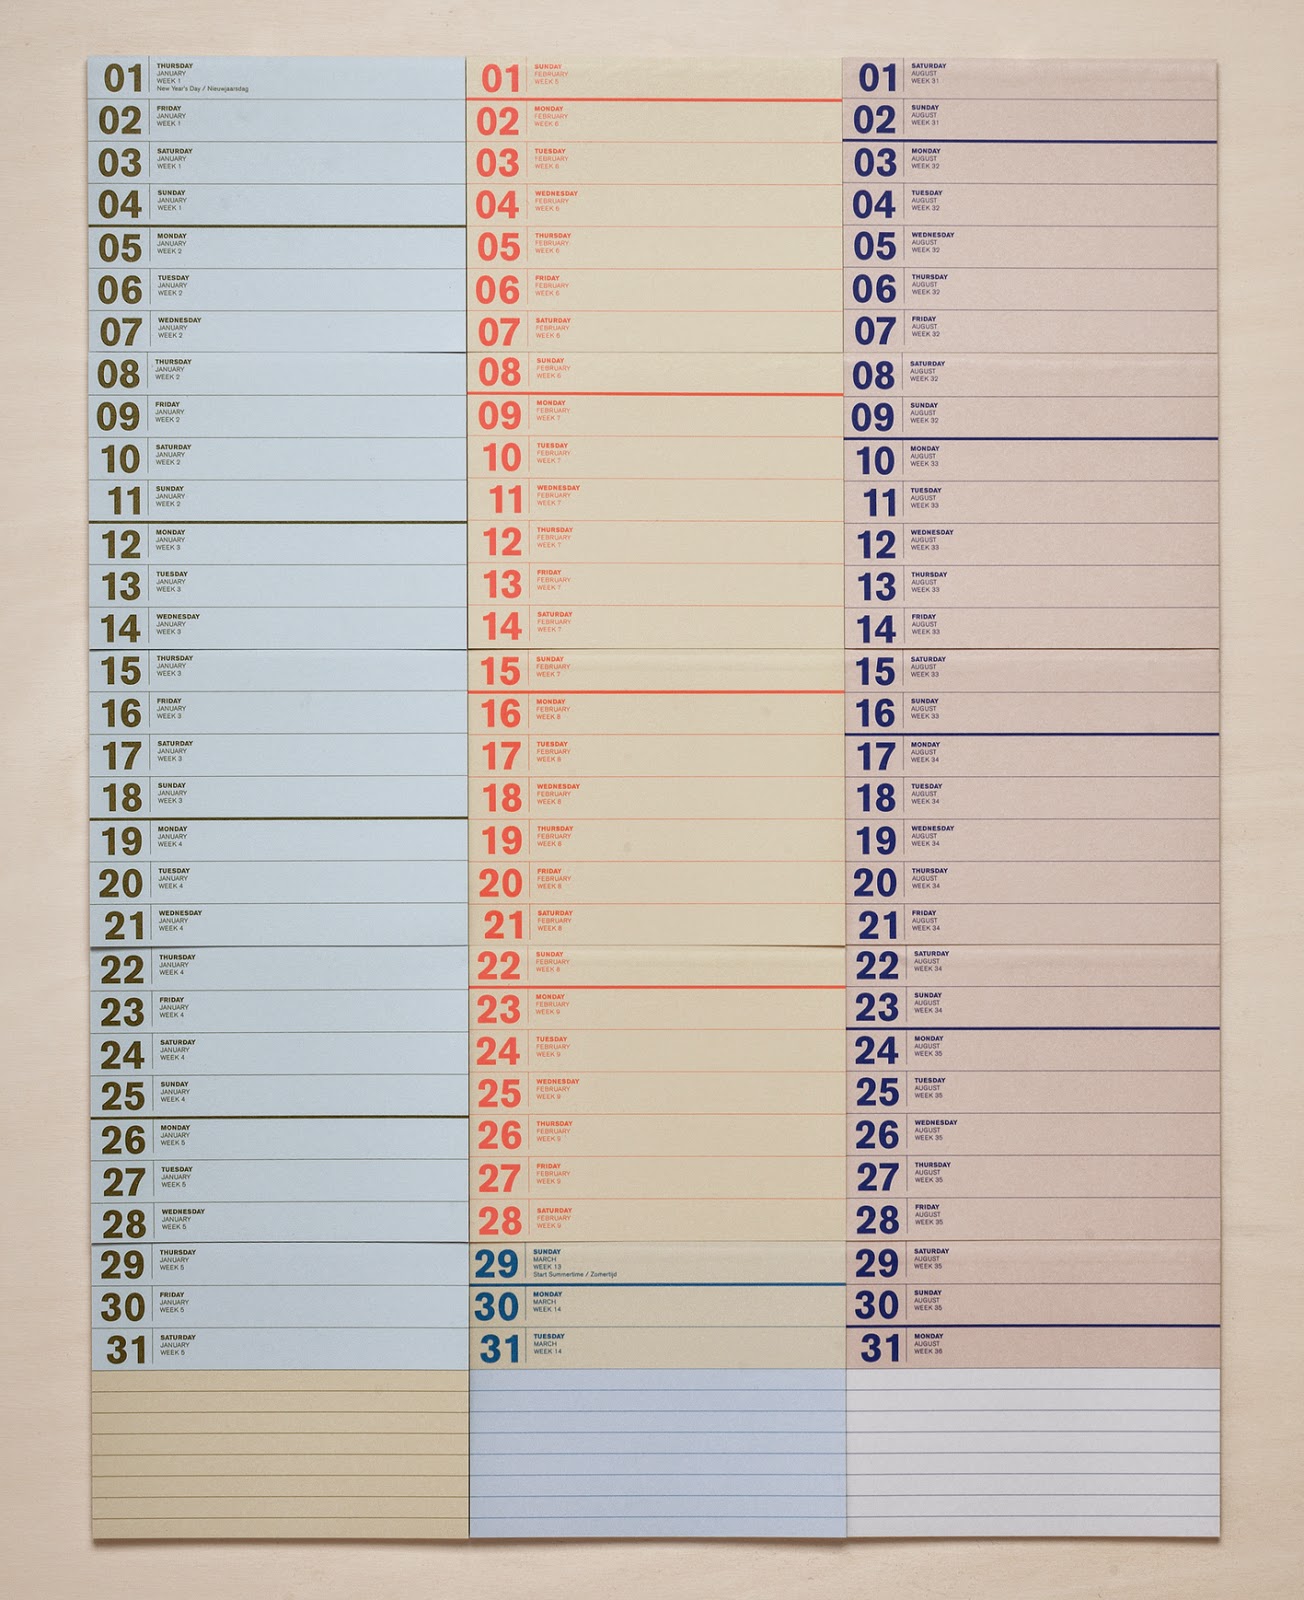 01
THURSDAY
JANUARY
WEEK 1
New Year's Day / Nieuwjaarsdag
02
FRIDAY
JANUARY
WEEK 1
03
SATURDAY
JANUARY
WEEK 1
04
SUNDAY
JANUARY
WEEK 1
05
MONDAY
JANUARY
WEEK 2
06
TUESDAY
JANUARY
WEEK 2
07
WEDNESDAY
JANUARY
WEEK 2
08
THURSDAY
JANUARY
WEEK 2
09
FRIDAY
JANUARY
WEEK 2
10
SATURDAY
JANUARY
WEEK 2
11
SUNDAY
JANUARY
WEEK 2
12
MONDAY
JANUARY
WEEK 3
13
TUESDAY
JANUARY
WEEK 3
14
WEDNESDAY
JANUARY
WEEK 3
15
THURSDAY
JANUARY
WEEK 3
16
FRIDAY
JANUARY
WEEK 3
17
SATURDAY
JANUARY
WEEK 3
18
SUNDAY
JANUARY
WEEK 3
19
MONDAY
JANUARY
WEEK 4
20
TUESDAY
JANUARY
WEEK 4
21
WEDNESDAY
JANUARY
WEEK 4
22
THURSDAY
JANUARY
WEEK 4
23
FRIDAY
JANUARY
WEEK 4
24
SATURDAY
JANUARY
WEEK 4
25
SUNDAY
JANUARY
WEEK 4
26
MONDAY
JANUARY
WEEK 5
27
TUESDAY
JANUARY
WEEK 5
28
WEDNESDAY
JANUARY
WEEK 5
29
THURSDAY
JANUARY
WEEK 5
30
FRIDAY
JANUARY
WEEK 5
31
SATURDAY
JANUARY
WEEK 5
01
SUNDAY
FEBRUARY
WEEK 5
02
MONDAY
FEBRUARY
WEEK 6
03
TUESDAY
FEBRUARY
WEEK 6
04
WEDNESDAY
FEBRUARY
WEEK 6
05
THURSDAY
FEBRUARY
WEEK 6
06
FRIDAY
FEBRUARY
WEEK 6
07
SATURDAY
FEBRUARY
WEEK 6
08
SUNDAY
FEBRUARY
WEEK 6
09
MONDAY
FEBRUARY
WEEK 7
10
TUESDAY
FEBRUARY
WEEK 7
11
WEDNESDAY
FEBRUARY
WEEK 7
12
THURSDAY
FEBRUARY
WEEK 7
13
FRIDAY
FEBRUARY
WEEK 7
14
SATURDAY
FEBRUARY
WEEK 7
15
SUNDAY
FEBRUARY
WEEK 7
16
MONDAY
FEBRUARY
WEEK 8
17
TUESDAY
FEBRUARY
WEEK 8
18
WEDNESDAY
FEBRUARY
WEEK 8
19
THURSDAY
FEBRUARY
WEEK 8
20
FRIDAY
FEBRUARY
WEEK 8
21
SATURDAY
FEBRUARY
WEEK 8
22
SUNDAY
FEBRUARY
WEEK 8
23
MONDAY
FEBRUARY
WEEK 9
24
TUESDAY
FEBRUARY
WEEK 9
25
WEDNESDAY
FEBRUARY
WEEK 9
26
THURSDAY
FEBRUARY
WEEK 9
27
FRIDAY
FEBRUARY
WEEK 9
28
SATURDAY
FEBRUARY
WEEK 9
29
SUNDAY
MARCH
WEEK 13
Start Summertime / Zomertijd
30
MONDAY
MARCH
WEEK 14
31
TUESDAY
MARCH
WEEK 14
01
SATURDAY
AUGUST
WEEK 31
02
SUNDAY
AUGUST
WEEK 31
03
MONDAY
AUGUST
WEEK 32
04
TUESDAY
AUGUST
WEEK 32
05
WEDNESDAY
AUGUST
WEEK 32
06
THURSDAY
AUGUST
WEEK 32
07
FRIDAY
AUGUST
WEEK 32
08
SATURDAY
AUGUST
WEEK 32
09
SUNDAY
AUGUST
WEEK 32
10
MONDAY
AUGUST
WEEK 33
11
TUESDAY
AUGUST
WEEK 33
12
WEDNESDAY
AUGUST
WEEK 33
13
THURSDAY
AUGUST
WEEK 33
14
FRIDAY
AUGUST
WEEK 33
15
SATURDAY
AUGUST
WEEK 33
16
SUNDAY
AUGUST
WEEK 33
17
MONDAY
AUGUST
WEEK 34
18
TUESDAY
AUGUST
WEEK 34
19
WEDNESDAY
AUGUST
WEEK 34
20
THURSDAY
AUGUST
WEEK 34
21
FRIDAY
AUGUST
WEEK 34
22
SATURDAY
AUGUST
WEEK 34
23
SUNDAY
AUGUST
WEEK 34
24
MONDAY
AUGUST
WEEK 35
25
TUESDAY
AUGUST
WEEK 35
26
WEDNESDAY
AUGUST
WEEK 35
27
THURSDAY
AUGUST
WEEK 35
28
FRIDAY
AUGUST
WEEK 35
29
SATURDAY
AUGUST
WEEK 35
30
SUNDAY
AUGUST
WEEK 35
31
MONDAY
AUGUST
WEEK 36